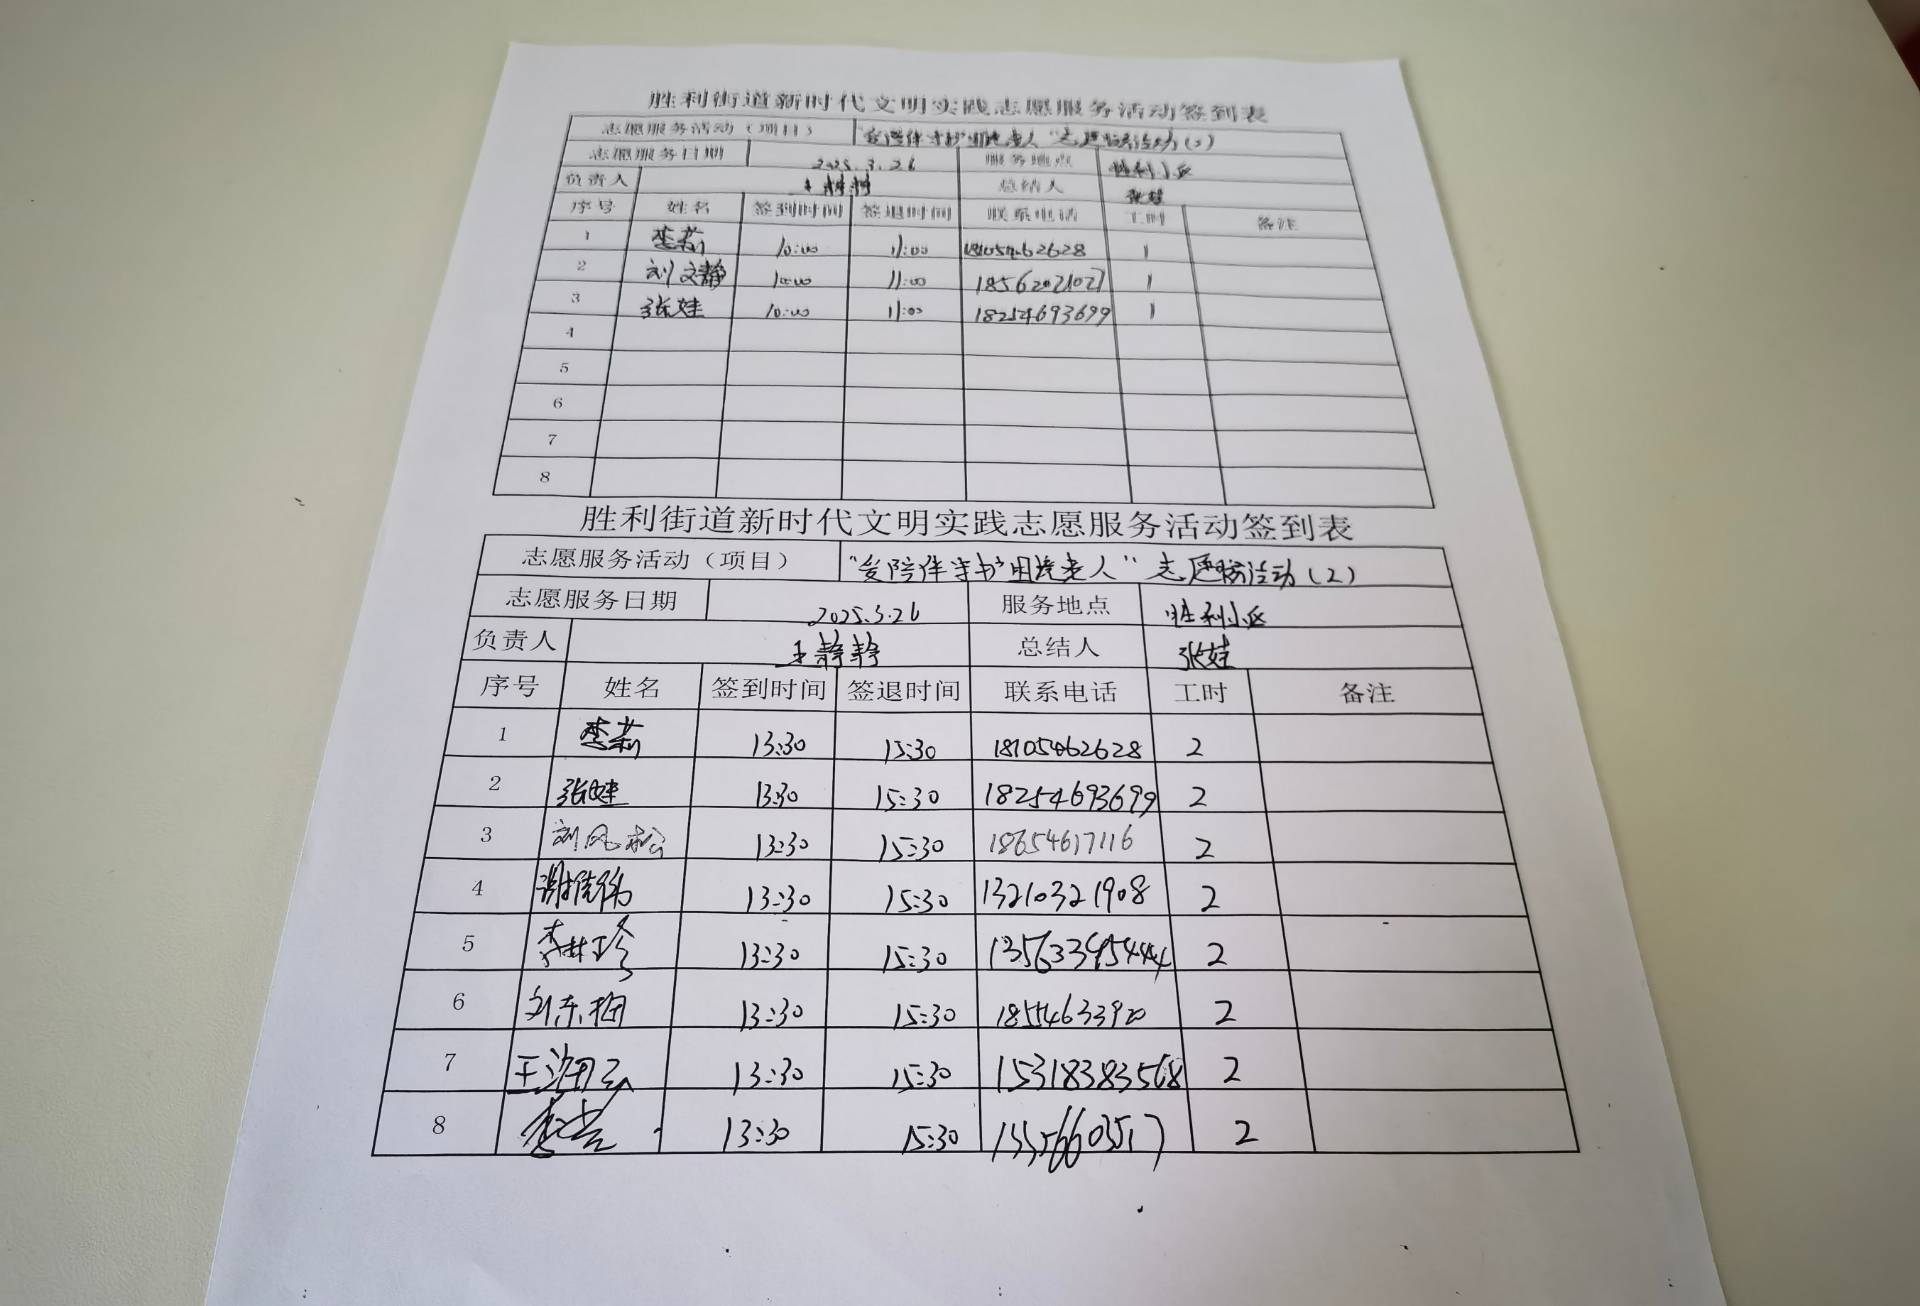 胜利街道新时代文明实践志愿服务活动签到表
志愿服务活动（项目） "爱陪伴守护困境老人"志愿服务活动(2)
志愿服务日期 2025.3.26 服务地点 胜利小区
负责人 王静静 总结人 张娃
序号 姓名 签到时间 签退时间 联系电话 工时 备注
1 李莉 10:00 11:00 18105462628 1
2 刘文静 10:00 11:00 18562021027 1
3 张娃 10:00 11:00 18254693699 1
4
5
6
7
8
胜利街道新时代文明实践志愿服务活动签到表
志愿服务活动（项目） "爱陪伴守护困境老人"志愿服务活动(2)
志愿服务日期 2025.3.26 服务地点 胜利小区
负责人 王静静 总结人 张娃
序号 姓名 签到时间 签退时间 联系电话 工时 备注
1 李莉 13:30 15:30 18105462628 2
2 张娃 13:30 15:30 18254693699 2
3 刘风松 13:30 15:30 18654617116 2
4 13:30 15:30 13210321908 2
5 李林珍 13:30 15:30 2
6 刘东梅 13:30 15:30 18554633920 2
7 13:30 15:30 15318383568 2
8 13:30 15:30 13356603517 2